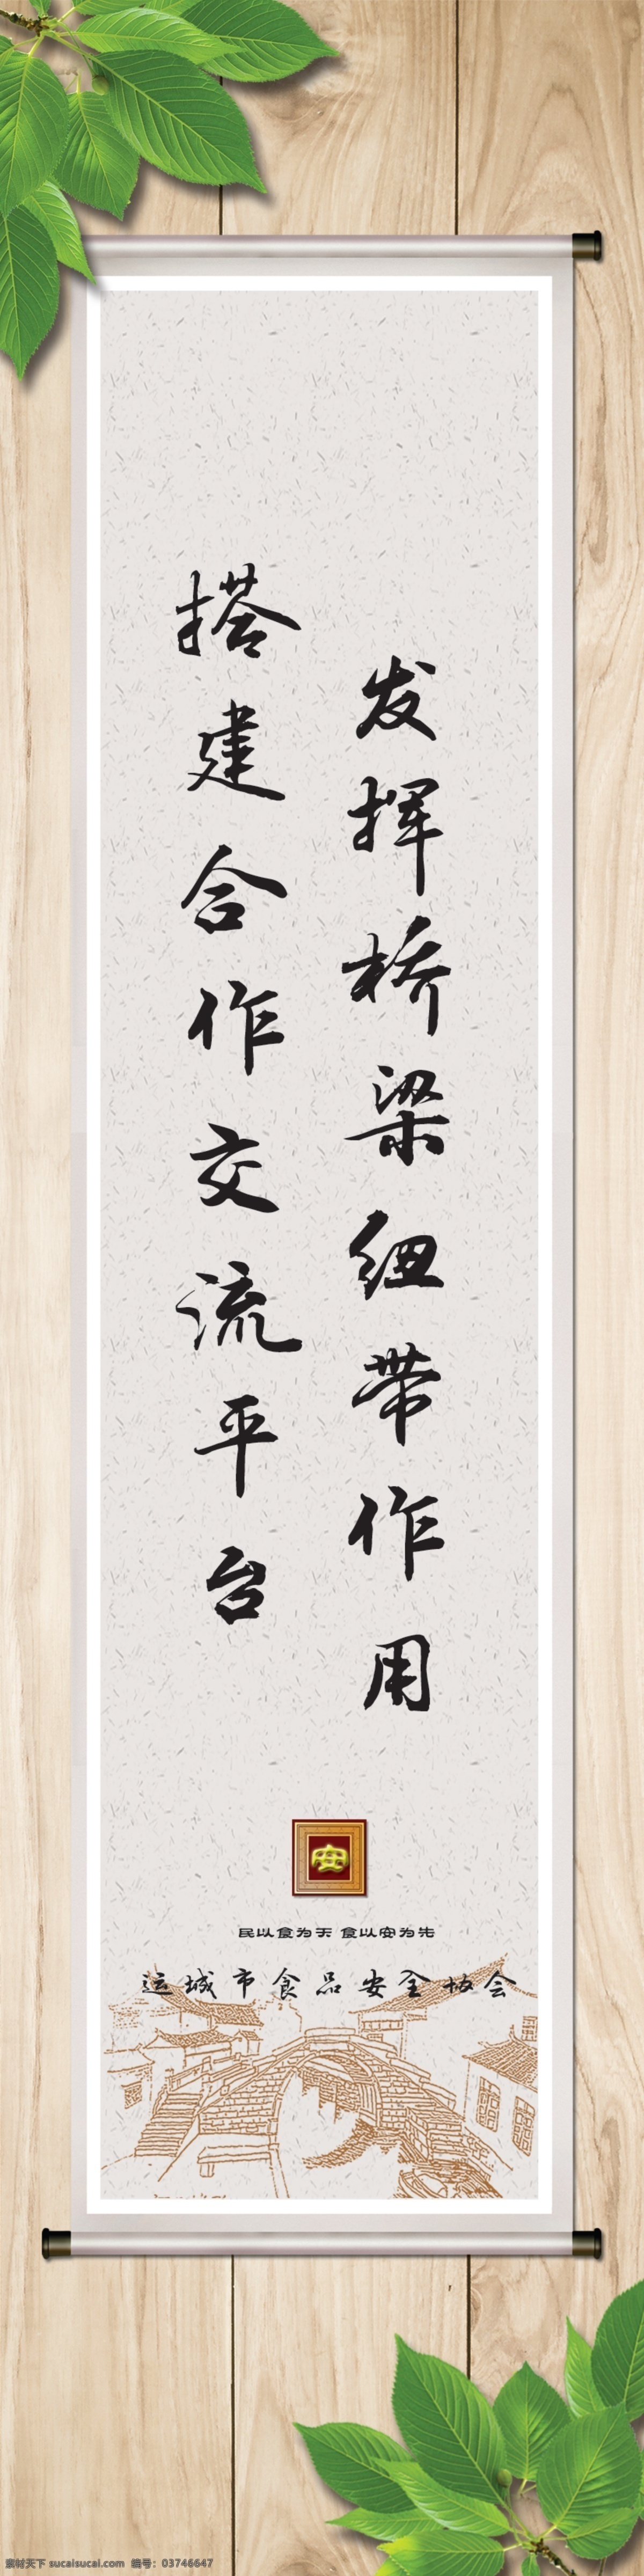 发挥桥梁纽带作用
搭建合作交流平台
安
民以食为天 食以安为先
运城市食品安全协会
素材天下 sucaisucai.com 编号：03746647